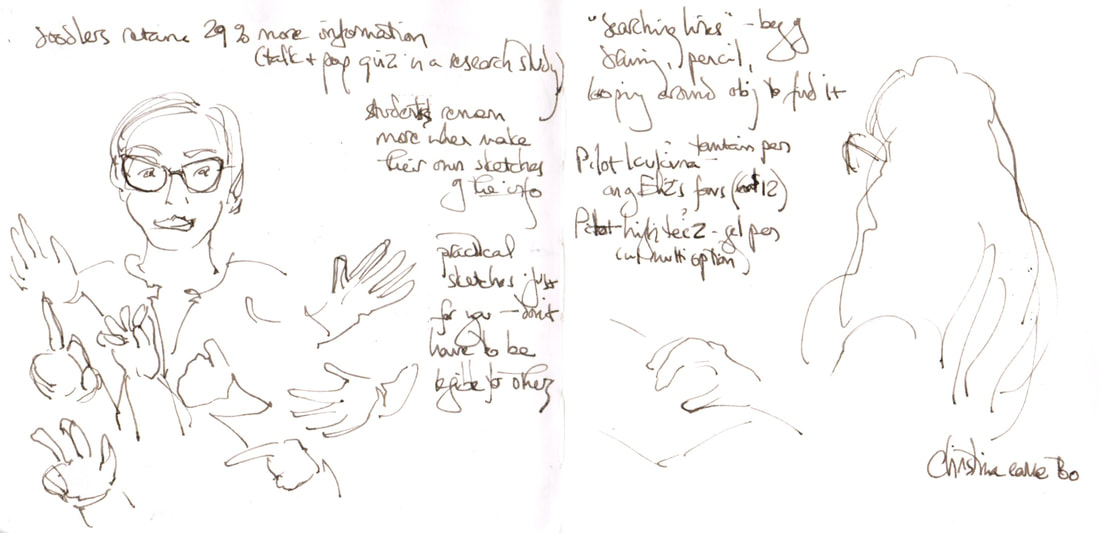 doodlers retain 29 % more information
(talk + pop quiz in a research study)
students remem
more when make
their own sketches
of the info
practical
sketches just
for you — don't
have to be
legible to others
"searching lines" - beg g
drawing, pencil,
looping around obj to find it
fountain pen
Pilot
favs ( $12)
Pilot high tec 2 - gel pen
multi option)
Christina Bo